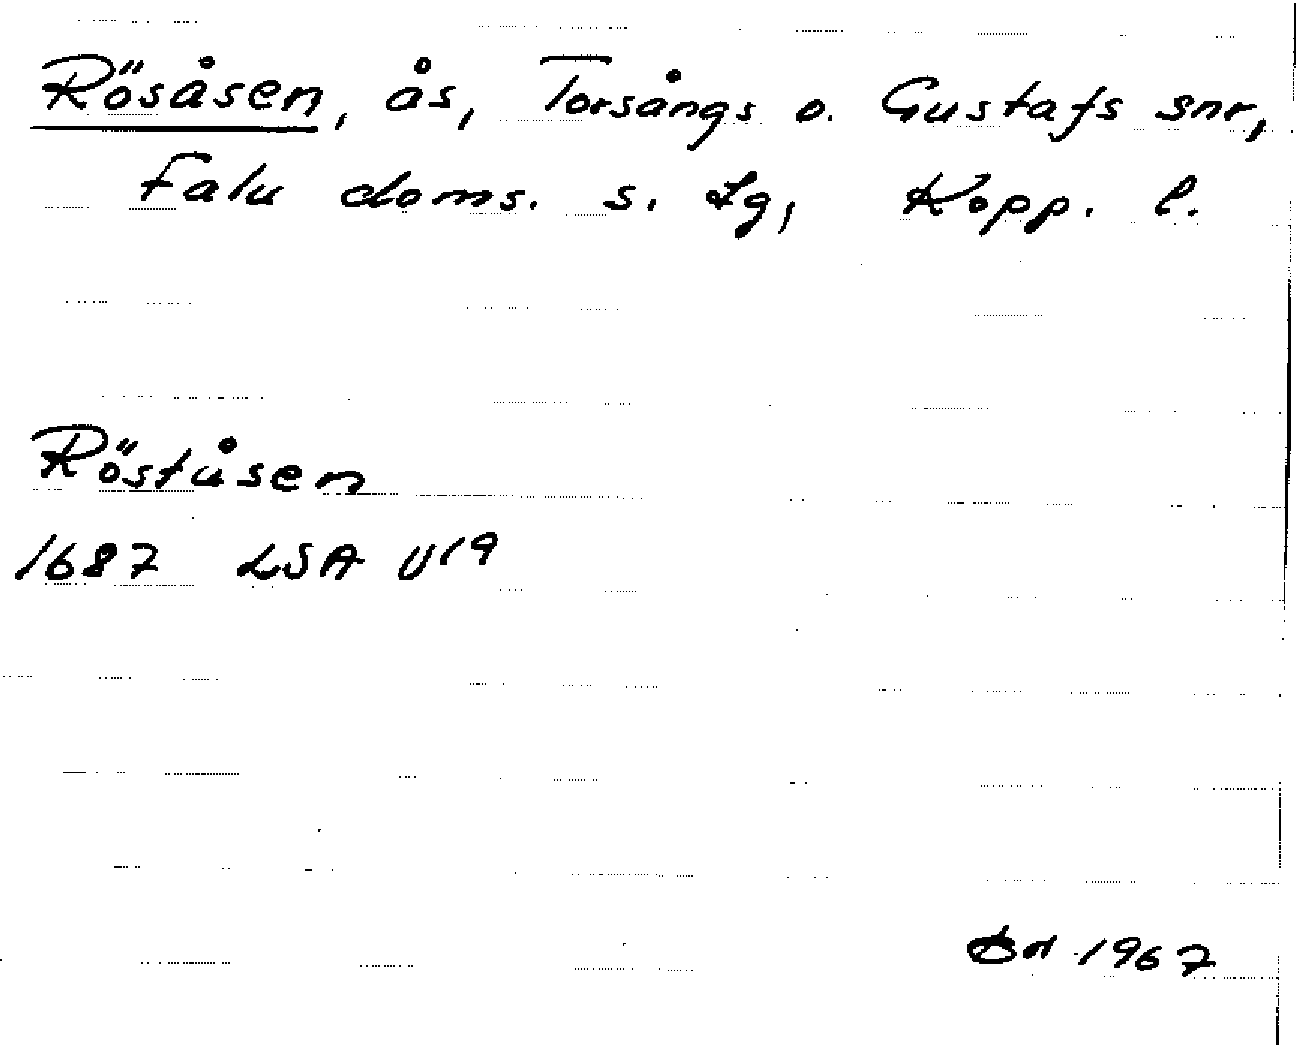 Rösåsen, ås, Torsångs o. Gustafs snr,
Falu doms. s. Lg, Kopp. l.
Röståsen
1687 LSA U19
1967